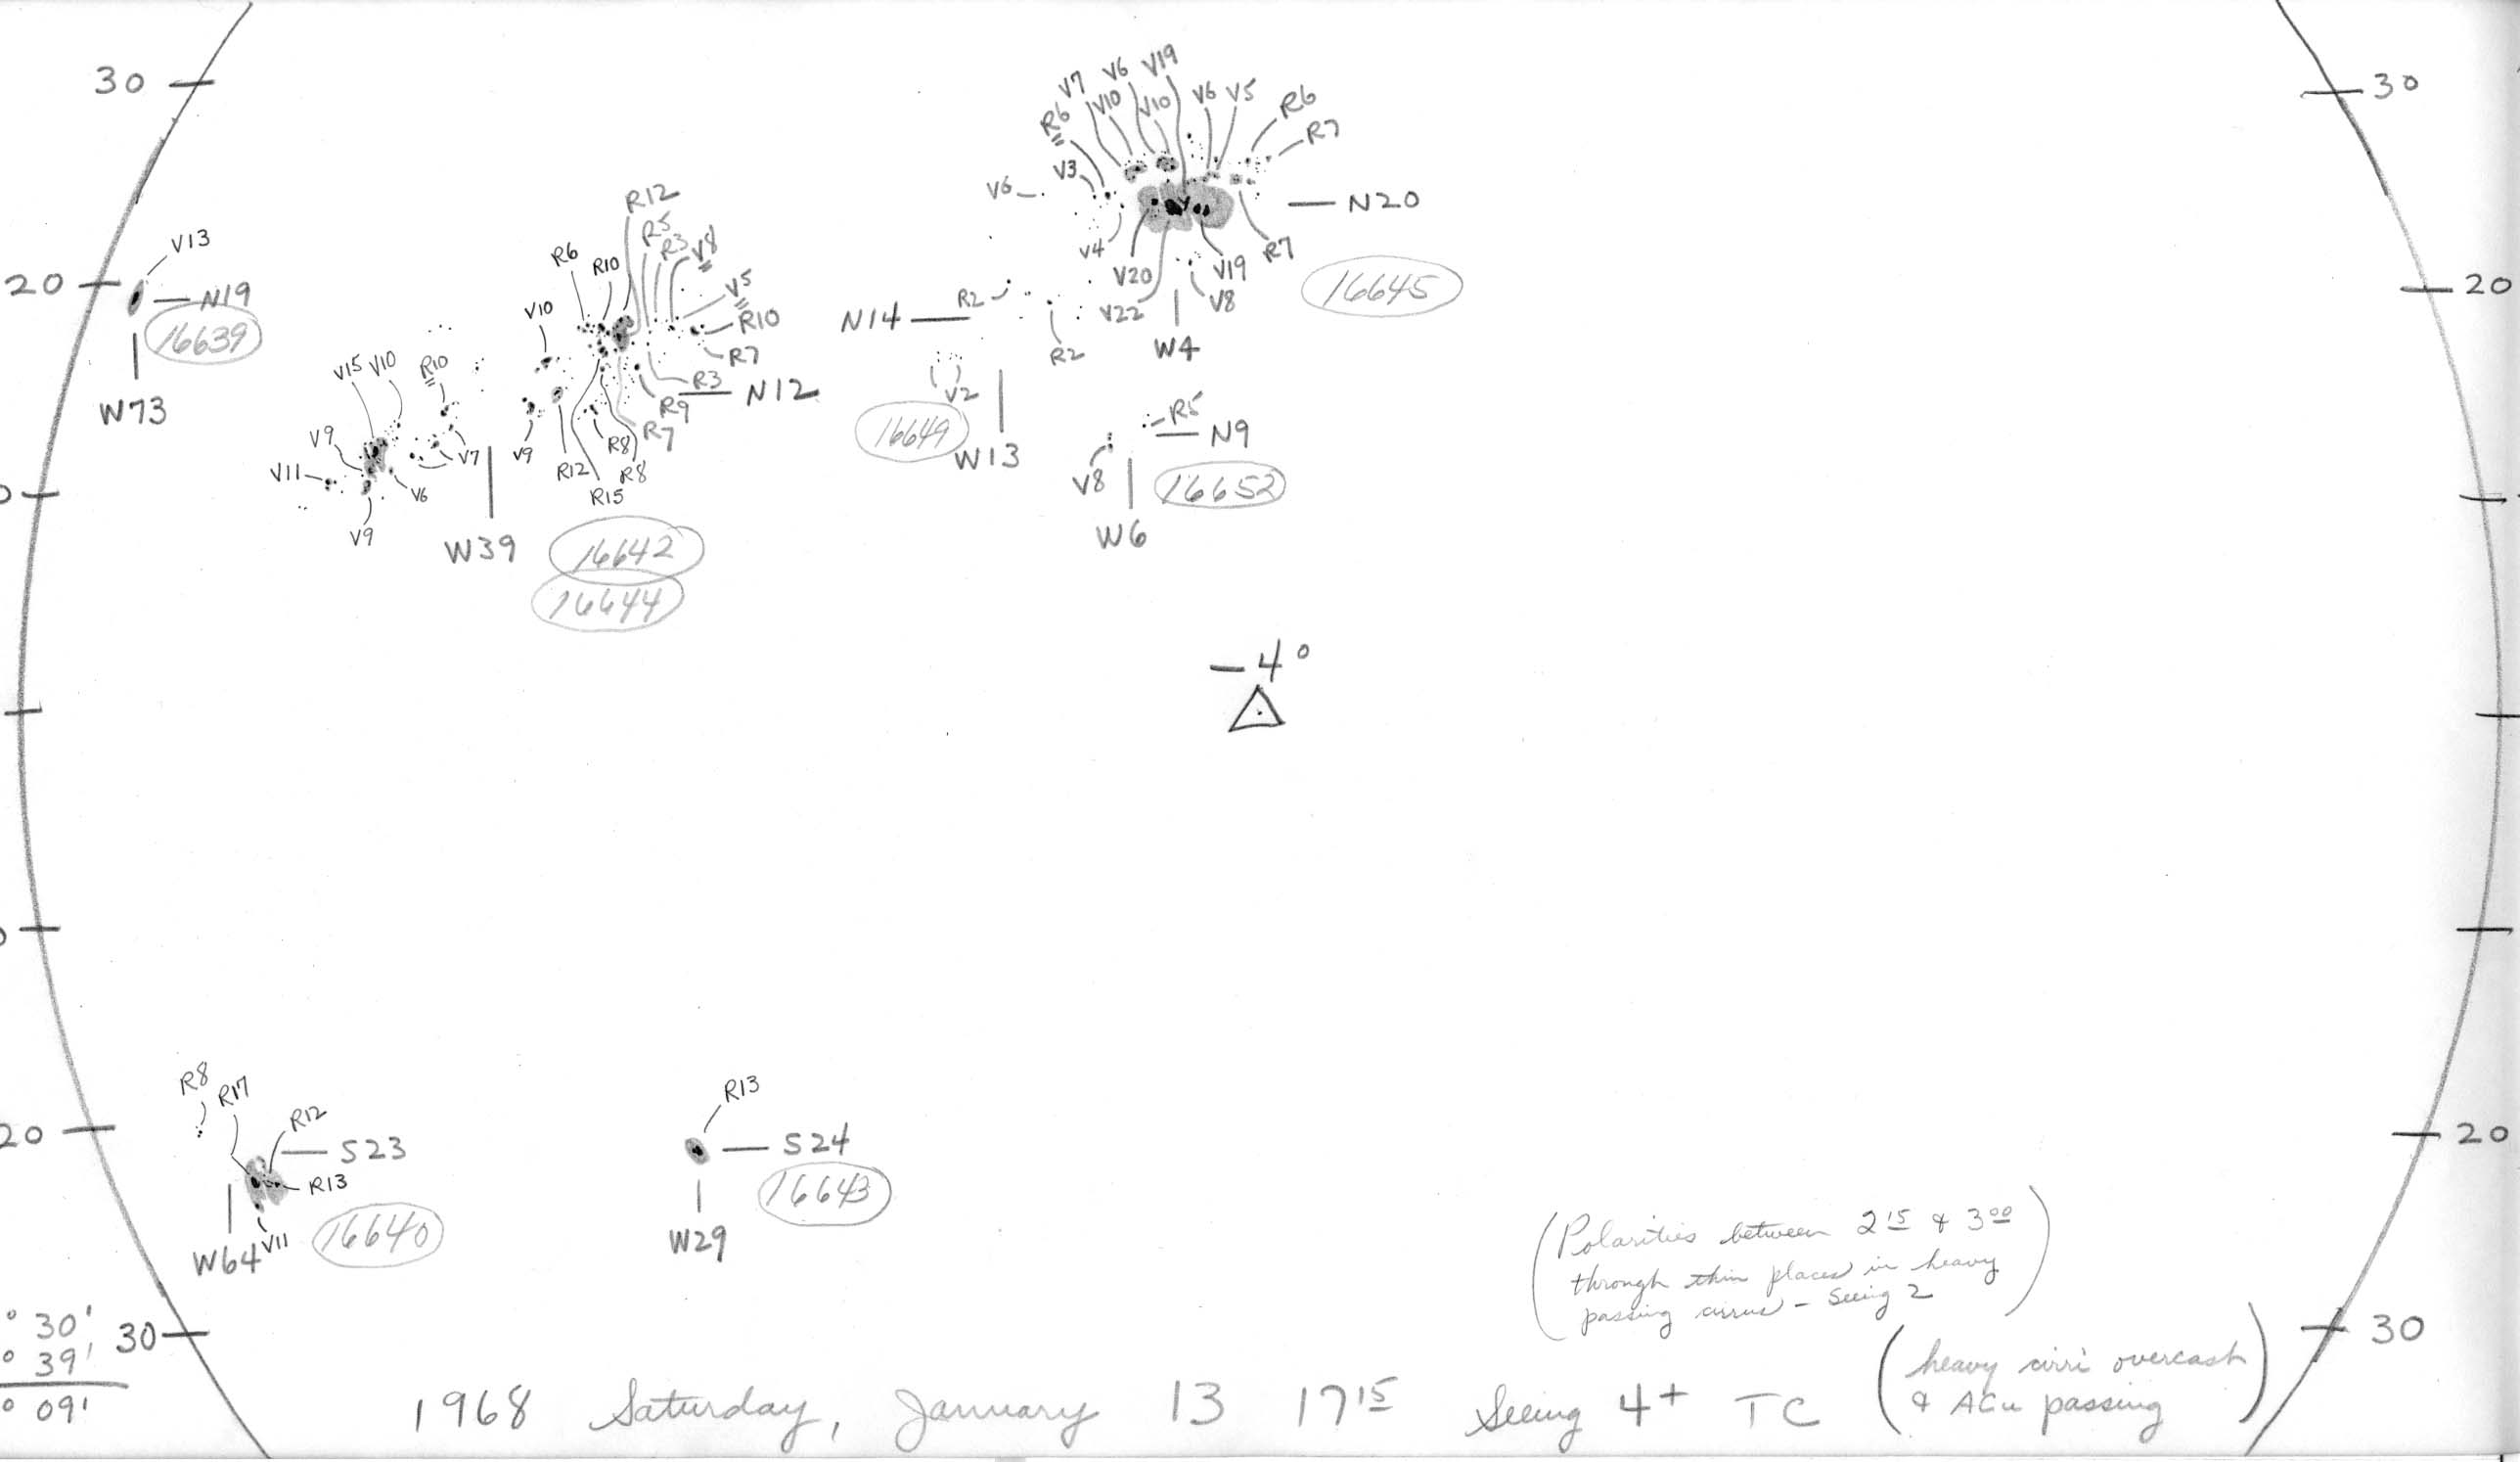 30
30
V7 V6 V19
V10 V10 V6 V5
R6 R6
R7
V3
V6
N20
V4
V20 V19 R7
V22 V8
W4
16645
V13
20
N19
16639
W73
R12
R5
R3 V8
R6 R10
V5
V10
R10
R7
R3
N12
R9
R7
V9 R12 R8
R8
R15
V15 V10 R10
V9
V11
V7
V6
V9
W39
16642
16644
R2
N14
R2
V2
16649
W13
R5
N9
V8
16652
W6
20
-4°
R8 R17
R12
20
S23
R13
V11
W64
16640
R13
S24
16643
W29
20
(Polarities between 2 15 & 3 00
through thin places in heavy
passing cirrus - Seeing 2)
° 30'
° 39'
° 09'
30
30
1968 Saturday, January 13 17 15 Seeing 4+ TC
(heavy cirri overcast
& ACu passing)